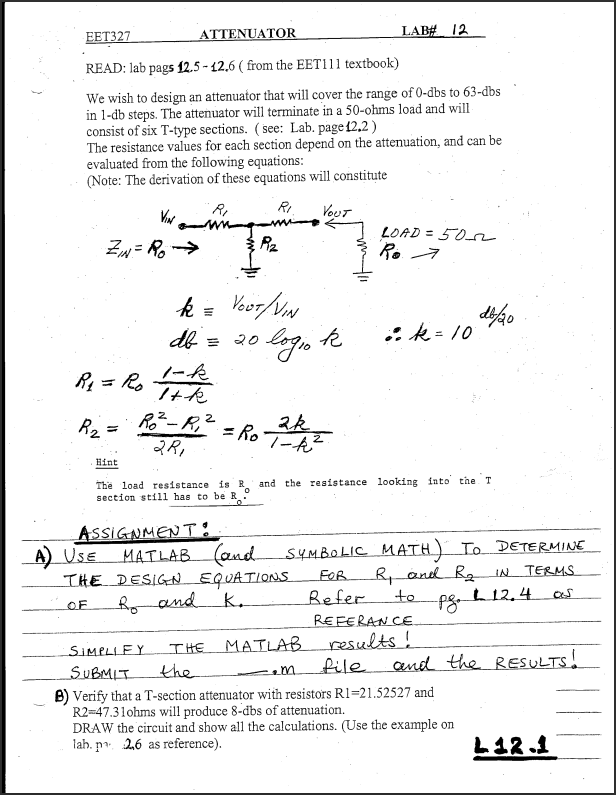 EET327 ATTENUATOR LAB# 12
READ: lab pags 12.5 - 12.6 ( from the EET111 textbook)
We wish to design an attenuator that will cover the range of 0-dbs to 63-dbs
in 1-db steps. The attenuator will terminate in a 50-ohms load and will
consist of six T-type sections. ( see: Lab. page 12.2 )
The resistance values for each section depend on the attenuation, and can be
evaluated from the following equations:
(Note: The derivation of these equations will constitute
VIN R1 R1 VOUT
ZIN = R0 → R2 LOAD = 50Ω
R0 →
k ≡ VOUT/VIN
db ≡ 20 log10 k ∴ k = 10^db/20
R1 = R0 (1-k)/(1+k)
R2 = (R0² - R1²)/(2R1) = R0 2k/(1-k²)
Hint
The load resistance is R0 and the resistance looking into the T
section still has to be R0.
ASSIGNMENT:
A) USE MATLAB (and SYMBOLIC MATH) TO DETERMINE
THE DESIGN EQUATIONS FOR R1 and R2 IN TERMS
OF R0 and K. Refer to pg. L 12.4 as
REFERANCE
SIMPLIFY THE MATLAB results!
SUBMIT the ___.m file and the RESULTS!
B) Verify that a T-section attenuator with resistors R1=21.52527 and
R2=47.31ohms will produce 8-dbs of attenuation.
DRAW the circuit and show all the calculations. (Use the example on
lab. 2.6 as reference).
L12.1